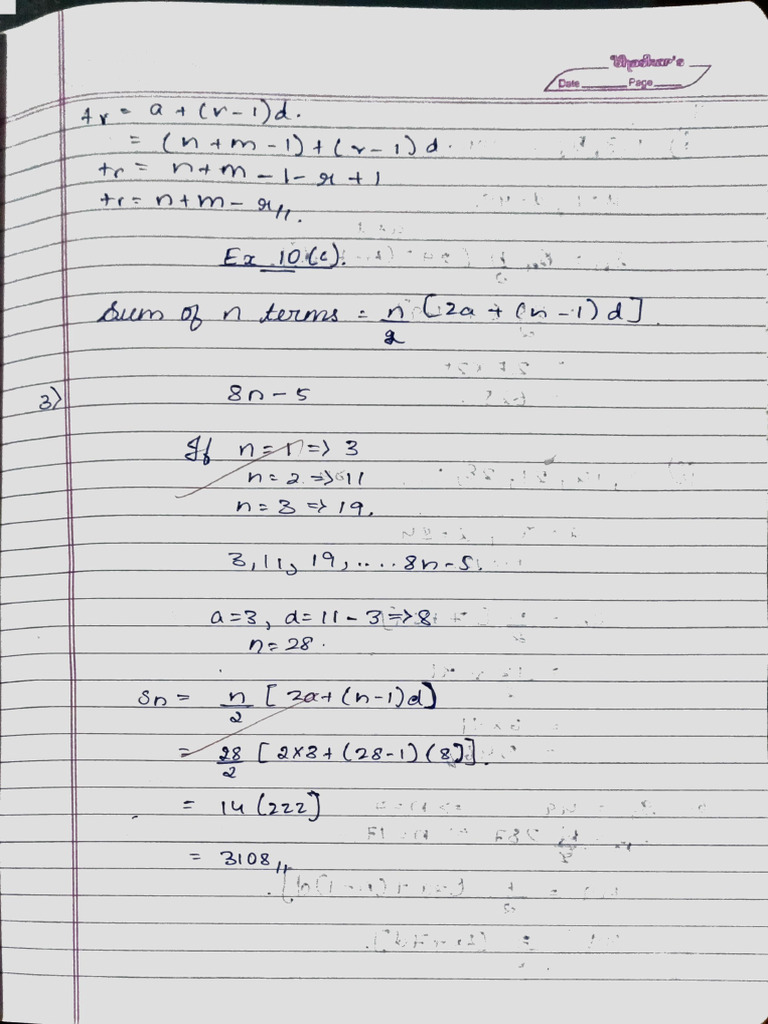 Bhaskar's
Date Page
tr = a + (r - 1) d.
= (n + m - 1) + (r - 1) d.
tr = n + m - 1 - r + 1
tr = n + m - r //.
Ex 10 (c).
Sum of n terms = n/2 [2a + (n - 1) d].
3) 8n - 5
If n = 1 => 3
n = 2 => 11
n = 3 => 19.
3, 11, 19, .... 8n - 5.
a = 3, d = 11 - 3 => 8
n = 28.
Sn = n/2 [2a + (n - 1) d]
= 28/2 [2 x 3 + (28 - 1) (8)].
= 14 (222]
= 3108 //